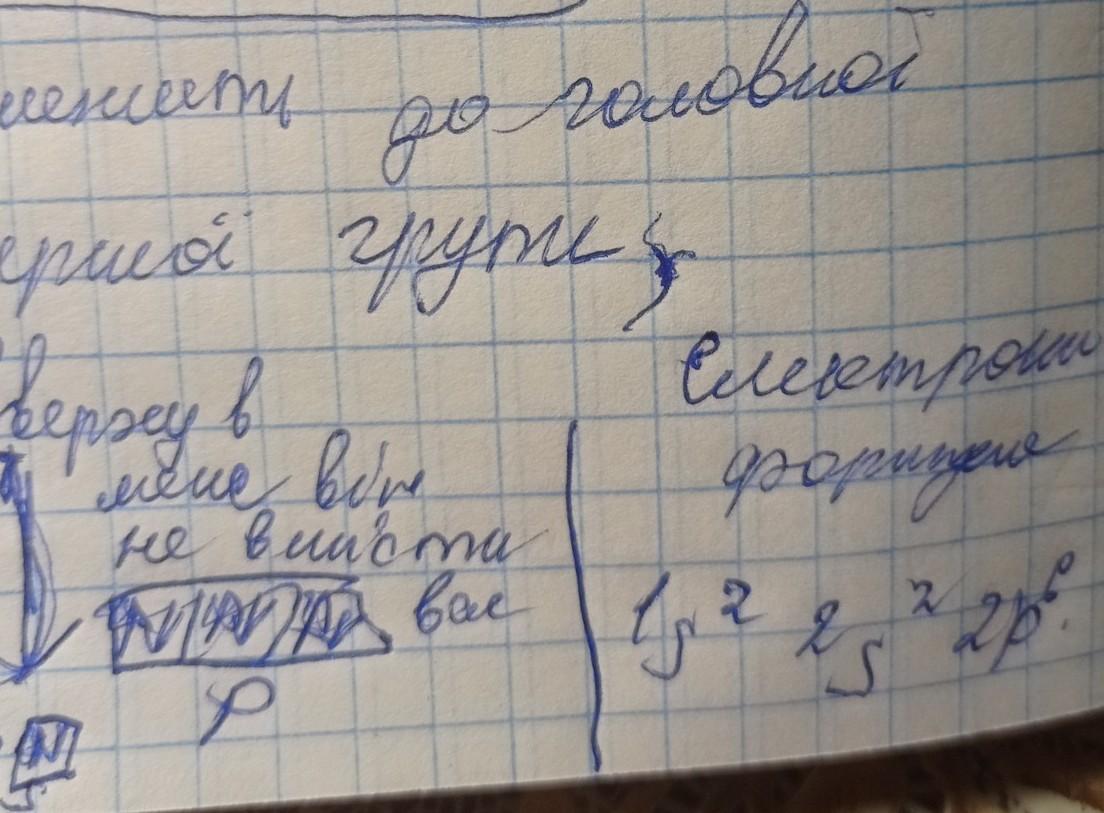 лежить до головної
ершої групи;
вержу в
мене він
не вмиста
вас
p
Електронн
формула
1s² 2s² 2p⁶.
s